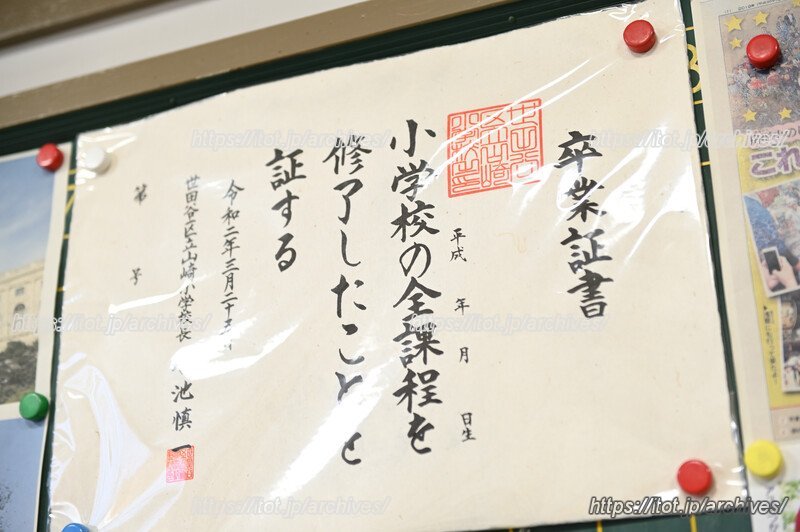 卒業証書
平成 年 月 日生
小学校の全課程を
修了したことを
証する
令和二年三月二十五日
世田谷区立山崎小学校長 池慎一
第 号
これ
https://itot.jp/archives/
https://itot.jp/archives/
https://itot.jp/archives/
https://itot.jp/archives/
https://itot.jp/archives/
https://itot.jp/archives/
https://itot.jp/archives/